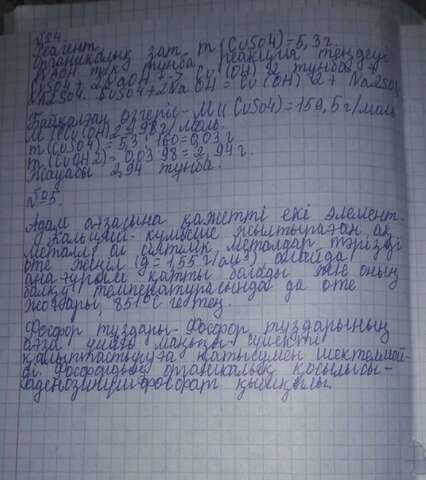 №4.
Реагент
Органикалық зат m(CuSO4)=5,3г.
NaOH түзу тұнба. реакция теңдеуі
CuSO4+2NaOH=> Cu(OH)2 тұнбаға +
Na2SO4. CuSO4+2NaOH=Cu(OH)2+Na2SO4
Байқалған өзгеріс-M(CuSO4)=159,5г/моль
M(Cu(OH)2=98г/моль.
m(CuSO4)=5,3:160=0,03г.
m(CuOH2)=0,03 98=2,94г.
Жауабы 2,94 тұнба.
№5.
Адам ағзасына қажетті екі элемент.
Кальций-күмісше жылтыраған ақ
металл ол сілтілік металдар тәрізді
өте жеңіл (g=1,55 г/см³) алайда
анағұрлым қатты болады және оның
балқу температурасында да өте
жоғары, 851°C ге тең.
Фосфор тұздары-Фосфор тұздарының
ағза үшін маңызы сүйекті
қалыптастыруға қатысумен шектелмей-
ді. Фосфордың органикалық қосылысы-
аденозинүшфосфат қышқылы.